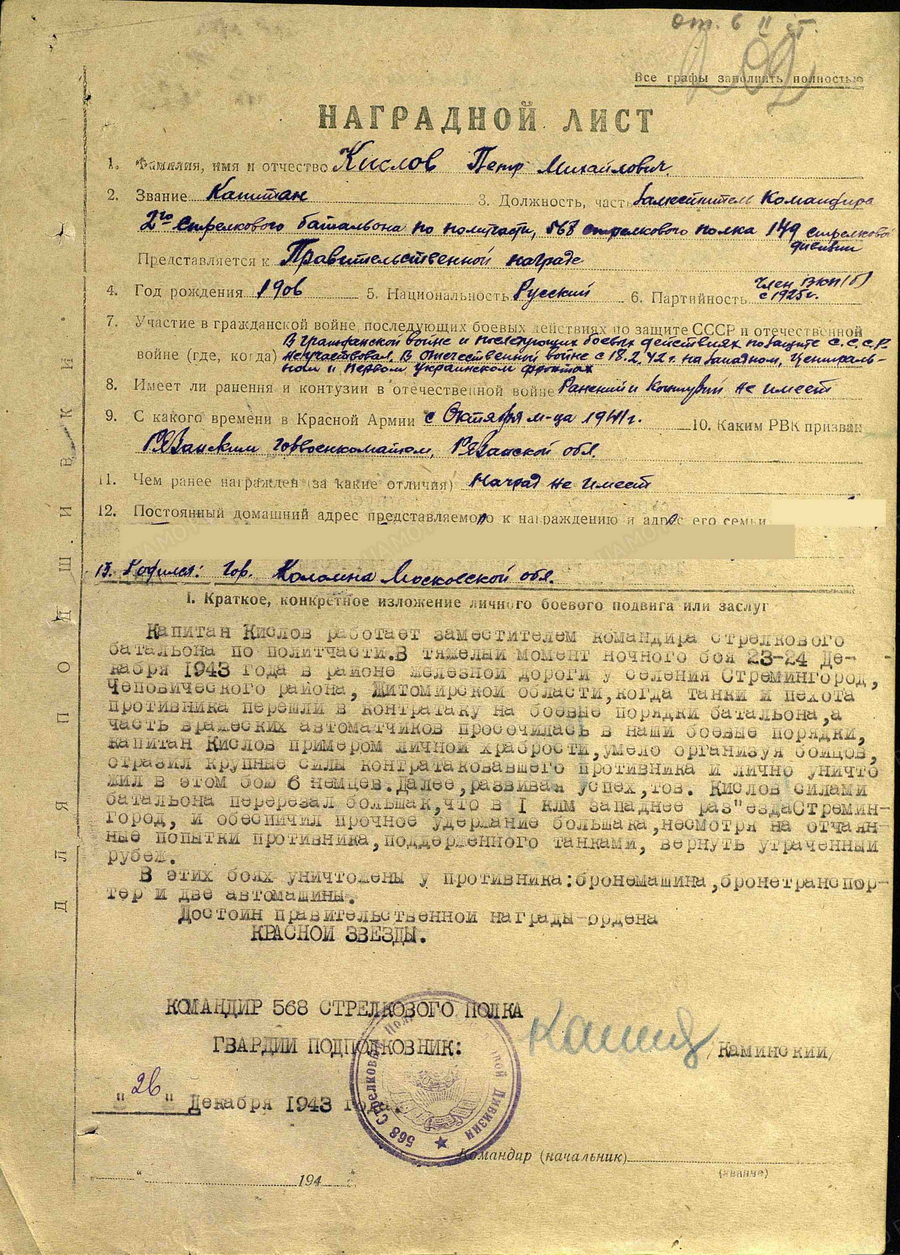 от. 6 II ст.
292
Все графы заполнять полностью
НАГРАДНОЙ ЛИСТ
1. Фамилия, имя и отчество Кислов Петр Михайлович
2. Звание Капитан 3. Должность, часть Заместитель Командира
2го стрелкового батальона по политчасти, 568 стрелкового полка 149 стрелковой
дивизии
Представляется к Правительственной награде
4. Год рождения 1906 5. Национальность Русский 6. Партийность Член ВКП(б)
с 1925г.
7. Участие в гражданской войне, последующих боевых действиях по защите СССР и отечественной
войне (где, когда) В гражданской войне и последующих боевых действиях по защите С.С.С.Р.
не участвовал. В отечественной войне с 18.2.42г. на Западном, Централь-
ном и Первом Украинском фронтах
8. Имеет ли ранения и контузии в отечественной войне Ранений и Контузий не имеет
9. С какого времени в Красной Армии с Октября м-ца 1941г. 10. Каким РВК призван
Рязанским горвоенкоматом, Рязанской обл.
11. Чем ранее награжден (за какие отличия) Наград не имеет
12. Постоянный домашний адрес представляемого к награждению и адрес его семьи
13. Родился: гор. Коломна Московской обл.
I. Краткое, конкретное изложение личного боевого подвига или заслуг
Капитан Кислов работает заместителем командира стрелкового
батальона по политчасти.В тяжелый момент ночного боя 23-24 Де-
кабря 1943 года в районе железной дороги у селения Стремингород,
Чеповического района, Житомирской области,когда танки и пехота
противника перешли в контратаку на боевые порядки батальона,а
часть вражеских автоматчиков просочилась в наши боевые порядки,
капитан Кислов примером личной храбрости,умело организуя бойцов,
отразил крупные силы контратаковавшего противника и лично уничто
жил в этом бою 6 немцев.Далее,развивая успех,тов. Кислов силами
батальона перерезал большак,что в I клм западнее раз"ездаСтремин-
город, и обеспичил прочное удержание большака,несмотря на отчаян-
ные попытки противника,поддерженного танками, вернуть утраченный
рубеж.
В этих боях уничтожены у противника:бронемашина,бронетранспор-
тер и две автомашины.
Достоин правительственной награды-ордена
КРАСНОЙ ЗВЕЗДЫ.
КОМАНДИР 568 СТРЕЛКОВОГО ПОЛКА
ГВАРДИИ ПОДПОЛКОВНИК: /Каминский/
"26" Декабря 1943 года.
568 Стрелковый Полк Дивизии
Командир (начальник)
(звание)
" 194
ДЛЯ ПОДШИВКИ